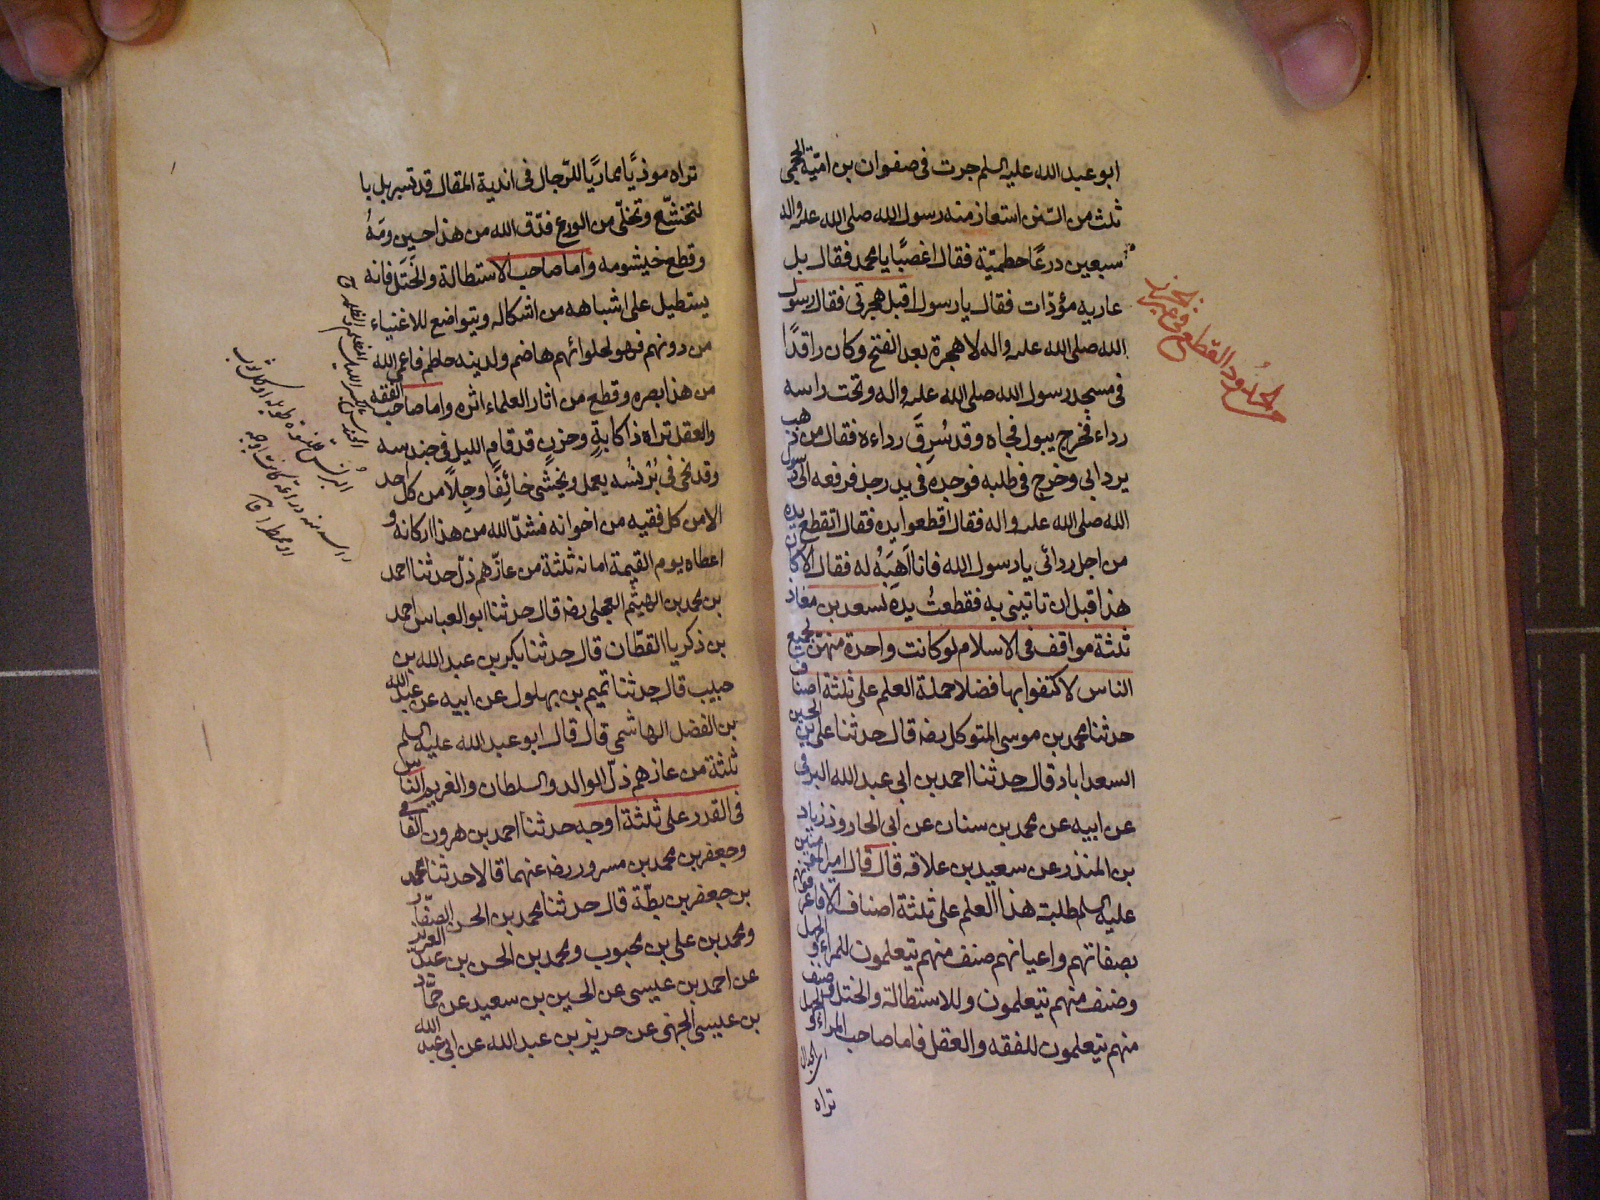 ابو عبد الله عليه السلم جرت فى صفوان بن امية الجمحى
ثلث من السنن استعار منه رسول الله صلى الله عليه واله
سبعين درعًا حطمية فقال اغصبًا يا محمد فقال بل
عارية مؤدّات فقال يا رسول اقبل هجرتى فقال رسول
الله صلى الله عليه واله لا هجرة بعد الفتح وكان راقدًا
فى مسجد رسول الله صلى الله عليه واله وتحت راسه
رداءه فخرج يبول فجاه وقد سُرِقَ رداءه فقال من ذهب
بردائى وخرج فى طلبه فوجده فى يد رجل فرفعه الى رسول
الله صلى الله عليه واله فقال اقطعوا يده فقال اتقطع يده
من اجل ردائى يا رسول الله فانا اَهَبَهُ له فقال الا كان
هذا قبل ان تاتينى به فقطعتُ يده لسعد بن معاذ
ثلثة مواقف فى الاسلام لو كانت واحدة منهن بجميع
الناس لاكتفوا بها فضلا حملة العلم على ثلثة اصناف
حدثنا محمد بن موسى المتوكل رضه قال حدثنا على بن الحسين
السعدابادى قال حدثنا احمد بن ابى عبد الله البرقى
عن ابيه عن محمد بن سنان عن ابى الجارود زياد
بن المنذر عن سعيد بن علاقه قال قال امير المؤمنين
عليه السلم طلبة هذا العلم على ثلثة اصناف الا فاعرفوهم
بصفاتهم واعيانهم صنف منهم يتعلمون للمراء والجهل
وصنف منهم يتعلمون وللاستطالة والختل وصنف
منهم يتعلمون للفقه والعقل فاما صاحب المراء والجهل
تراه
تراه موذيًا مماريًا للرجال فى اندية المقال قد تسربل با
لتخشّع وتخلّى من الورع فدّق الله من هذا حيزومَهُ
وقطع خيشومه واما صاحب الاستطالة والختَل فانه
يستطيل على اشباهه من اشكاله ويتواضع للاغنياء
من دونهم فهو لحلوائهم هاضم ولدينه حاطم فاعمى الله
من هذا بصره وقطع من اثار العلماء اثره واما صاحب الفقه
والعقل تراه ذا كابةٍ وحزنٍ قد قام الليل فى حندسه
وقد انحنى فى بُرْنُسه يعمل ويخشى خائِفًا وجِلًا من كل احد
الا من كل فقيه من اخوانه فشدّ الله من هذا اركانه و
اعطاه يوم القيمة امانه ثلثة من عازّهم ذلّ حدثنا احمد
بن محمد بن الهيثم العجلى رضه قال حدثنا ابو العباس احمد
بن زكريا القطّان قال حدثنا بكر بن عبد الله بن
حبيب قال حدثنا تميم بن بهلول عن ابيه عن عبد الله
بن الفضل الهاشمى قال قال ابو عبد الله عليه السلم
ثلثة من عازهم ذلّ الوالد والسلطان والغريم الناس
فى القدر على ثلثة اوجه حدثنا احمد بن هرون الفامى
وجعفر بن محمد بن مسرور رضه عنهما قالا حدثنا محمد
بن جعفر بن بطّة قال حدثنا محمد بن الحسن الصفّار
ومحمد بن على بن محبوب ومحمد بن الحسن بن عبد العزيز
عن احمد بن عيسى عن الحسين بن سعيد عن حمّاد
بن عيسى الجهنى عن حريز بن عبد الله عن ابى عبد الله